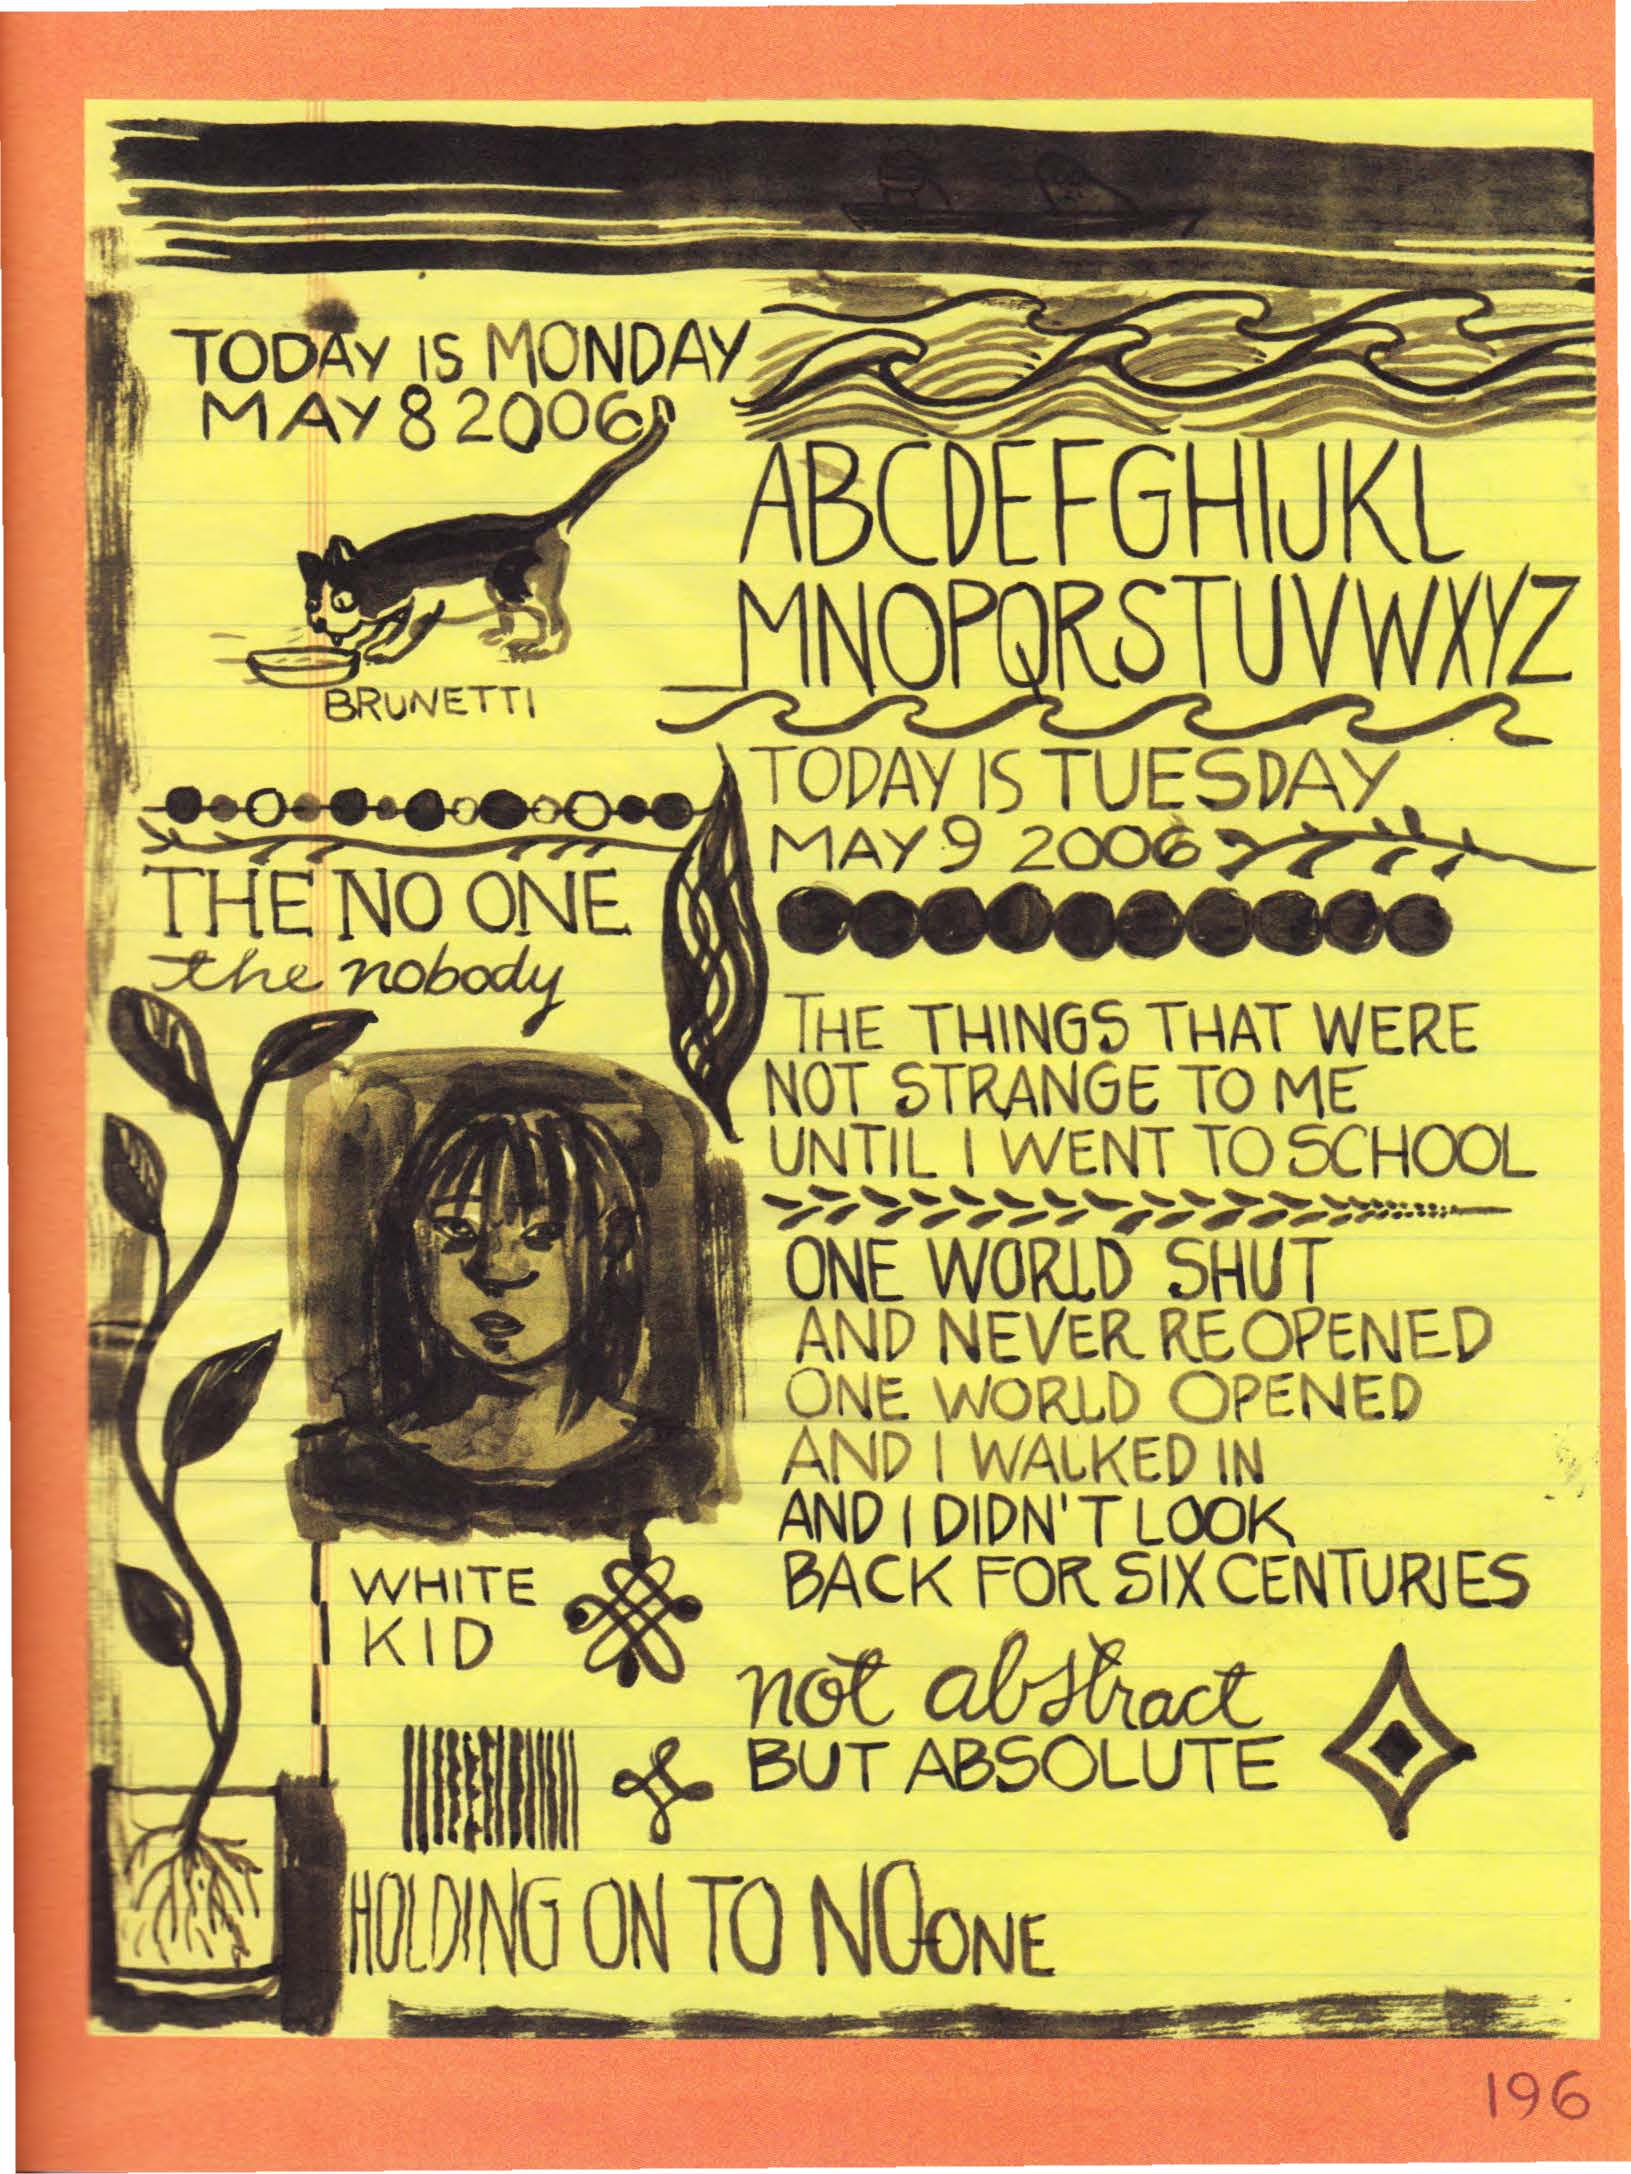 TODAY IS MONDAY
MAY 8 2006
BRUNETTI
ABCDEFGHIJKL
MNOPQRSTUVWXYZ
TODAY IS TUESDAY
MAY 9 2006
THE NO ONE
the nobody
THE THINGS THAT WERE
NOT STRANGE TO ME
UNTIL I WENT TO SCHOOL
ONE WORLD SHUT
AND NEVER REOPENED
ONE WORLD OPENED
AND I WALKED IN
AND I DIDN'T LOOK
BACK FOR SIX CENTURIES
WHITE
KID
not abstract
BUT ABSOLUTE
HOLDING ON TO NO-ONE
196